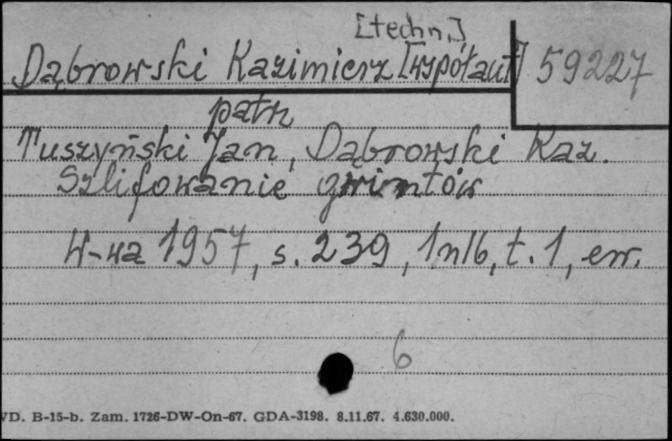 [techn.]
Dąbrowski Kazimierz [współaut] 59227
patrz
Tuszyński Jan, Dąbrowski Kaz.
Szlifowanie gwintów
W-wa 1957, s. 239, 1 nlb, t. 1, err.
6
VD. B-15-b. Zam. 1726-DW-On-67. GDA-3198. 8.11.67. 4.630.000.